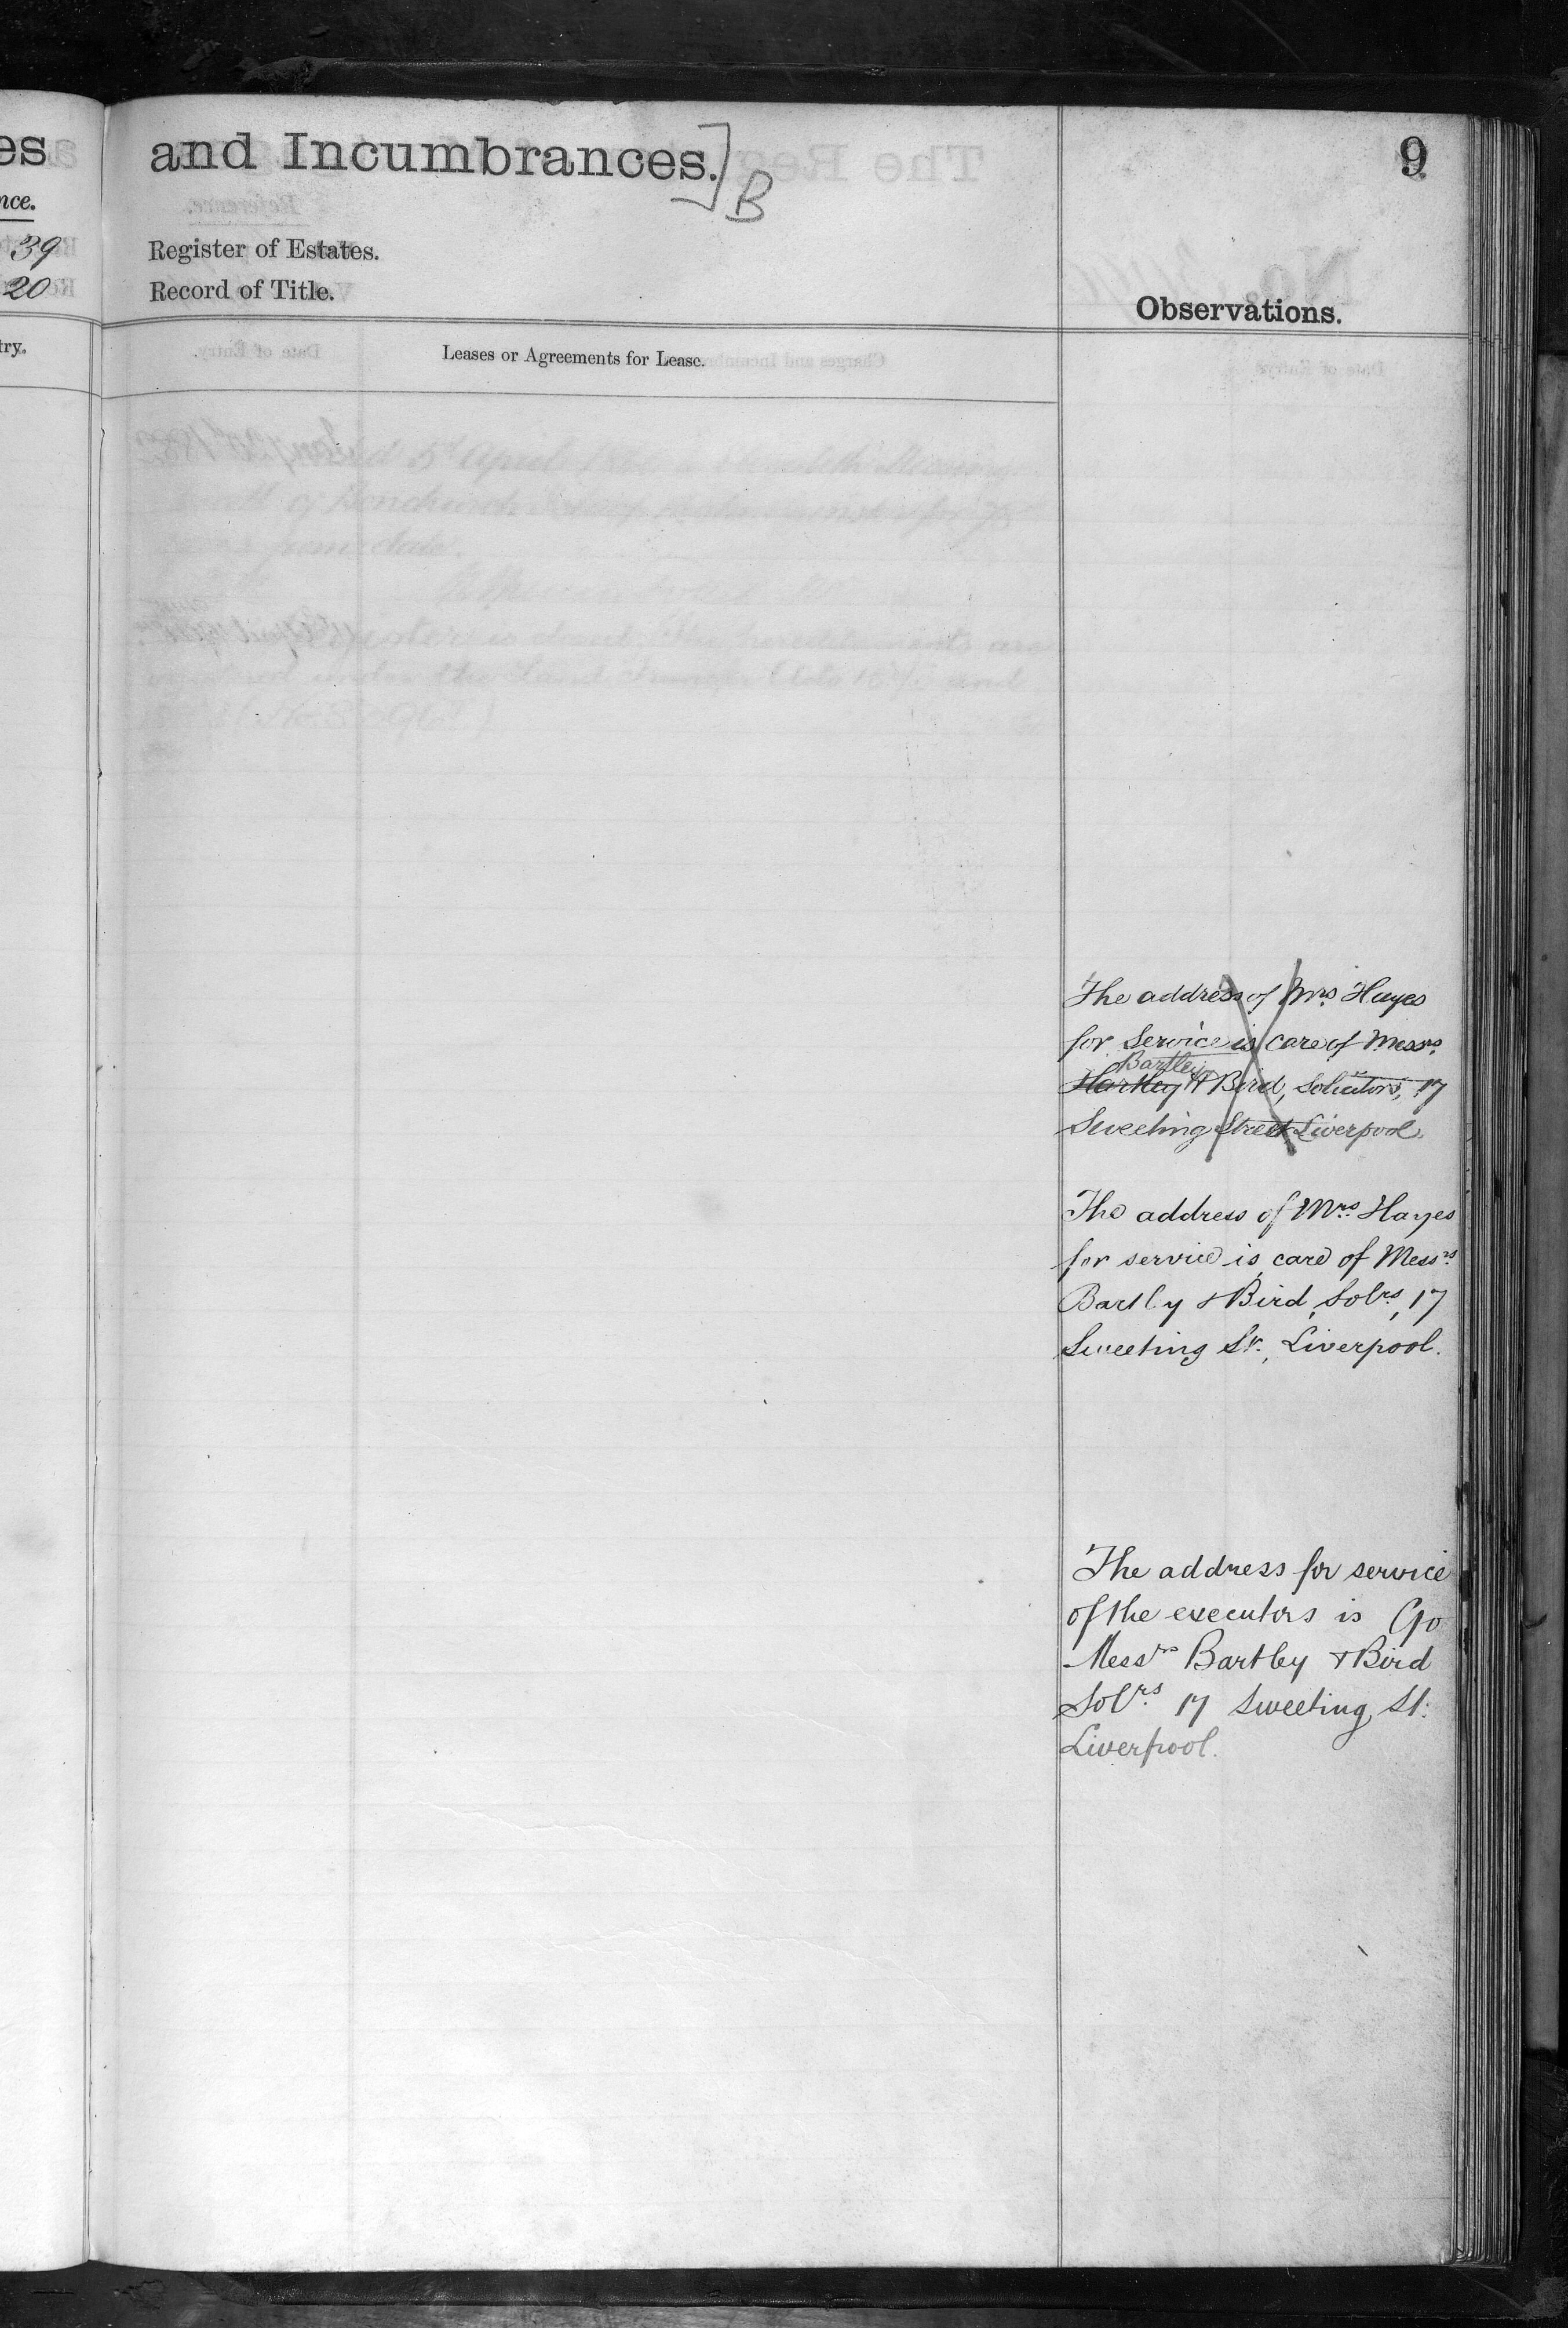 es
nce.
39
20
try.
and Incumbrances.] B
9
Register of Estates.
Record of Title.
Observations.
Leases or Agreements for Lease.
The address of Mrs. Hayes
for service is care of Messrs.
Bartley
Hartley & Bird, Solicitors, 17
Sweeting Street Liverpool.
The address of Mrs. Hayes
for service is care of Messrs.
Bartley & Bird, Solrs, 17
Sweeting St., Liverpool.
The address for service
of the executors is C/o
Messrs Bartley & Bird
Solrs. 17 Sweeting St.
Liverpool.